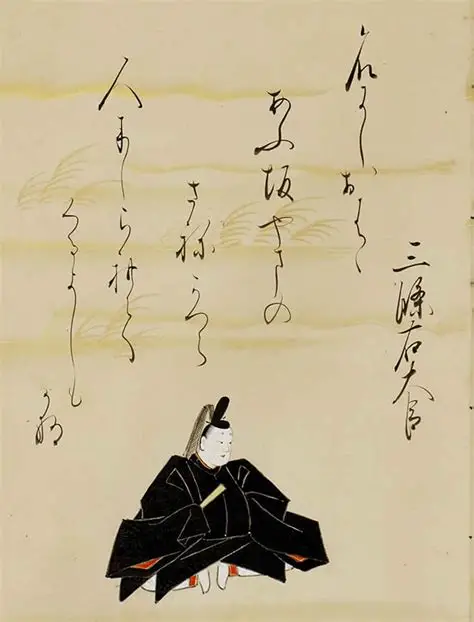 三條右大臣
名にしおはゝ
あふ坂やまの
さねかつら
人にしられて
くるよしも
かな